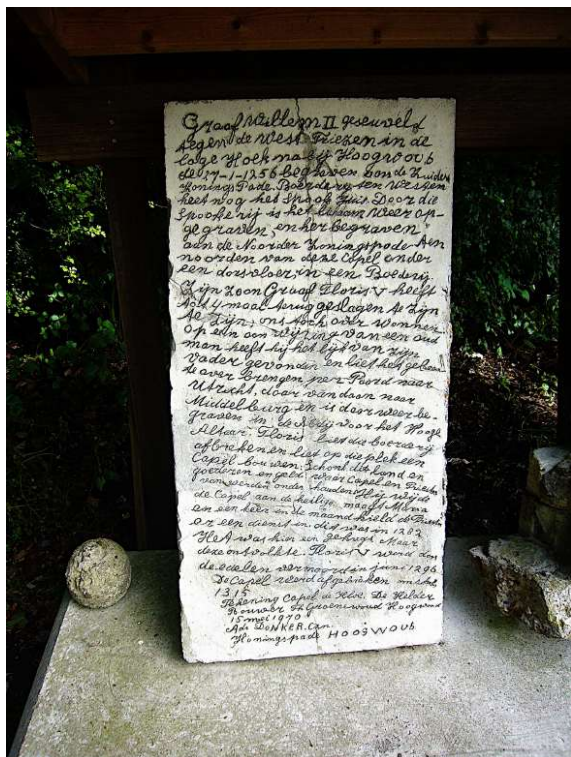 Graaf Willem II gesneuveld
tegen de West Friezen in de
lage Hoek nabij Hoogwoub
del 27-1-1256 begraven aan de Zuider
Konings Pade. Boerdery ten Westen
heet nog het Spook Huis Door die
Spokerij is het lichaam weer op-
gegraven, en her begraven
aan de Noorder Koningspade Aen
noorden van deze Capel onder
een dorsvloer, in een Boederij
Zijn Zoon Graaf Floris V heeft
tot 4 maal terug geslagen te zijn
te zijn, ons toch over wonnen
op een aan wijzing van een oud
man heeft hij het lijk van zijn
vader gevonden en liet het gebeen
te over brengen per Paard naar
Utrecht, daar van daan naar
Middelburg en is daar weer be-
graven in de Abdij voor het Hooge
Altaar. Floris liet die boerderij
afbreken en liet op die plek een
Capel bouwen. Schonk die land en
goederen en geld waar Capel en Priester
van werden onder houden. Hij wijde
de Capel aan de heilige maagd Maria
en een keer in de maand hield de Priester
er een dienst in dit was in 1282
Het was hier een gehugt Maer
deze ontvolkte. Floris V werd don
de edelen vermoord in juni 1296
De Capel werd afgebroken in het
1315
Tekening Capel de Hr. De Helder
Bouwer Th Groenewoud Hoogwoud
15 mei 1970
Ade DONKER. Czn.
Koningspade HOOGWOUB